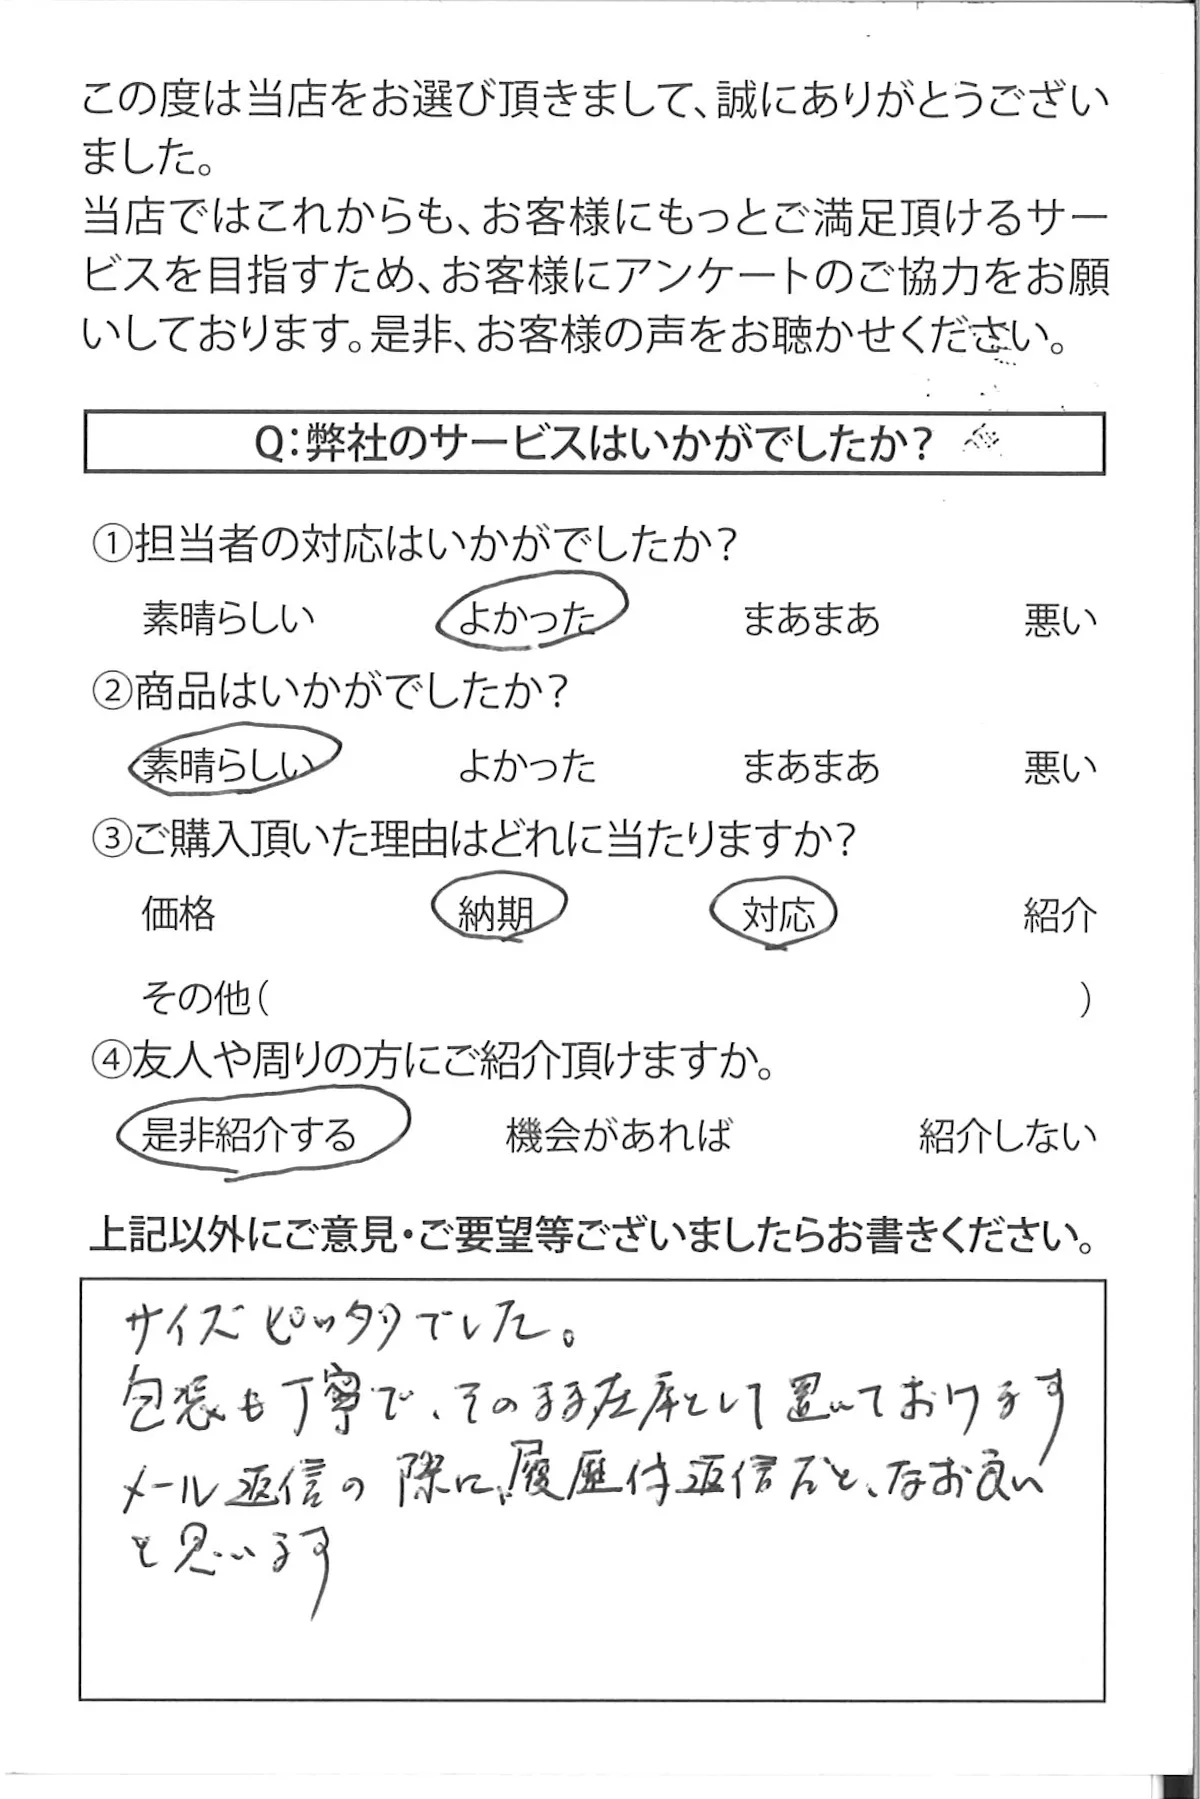 この度は当店をお選び頂きまして、誠にありがとうござい
ました。
当店ではこれからも、お客様にもっとご満足頂けるサー
ビスを目指すため、お客様にアンケートのご協力をお願
いしております。是非、お客様の声をお聴かせください。
Q：弊社のサービスはいかがでしたか？
①担当者の対応はいかがでしたか？
素晴らしい よかった まあまあ 悪い
②商品はいかがでしたか？
素晴らしい よかった まあまあ 悪い
③ご購入頂いた理由はどれに当たりますか？
価格 納期 対応 紹介
その他（ ）
④友人や周りの方にご紹介頂けますか。
是非紹介する 機会があれば 紹介しない
上記以外にご意見・ご要望等ございましたらお書きください。
サイズピッタリでした。
包装も丁寧で、そのまま在庫として置いておけます
メール返信の際に、履歴付返信だと、なお良い
と思います